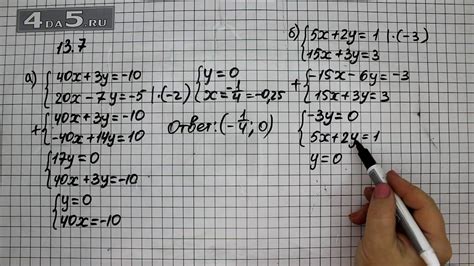 4DA5.RU
13.7
а) {40x+3y=-10
20x-7y=-5 |·(-2)
+ {40x+3y=-10
-40x+14y=10
{17y=0
40x+3y=-10
{y=0
40x=-10
{y=0
x=-1/4=-0,25
Ответ: (-1/4; 0)
б) {5x+2y=1 |·(-3)
15x+3y=3
+ {-15x-6y=-3
15x+3y=3
{-3y=0
5x+2y=1
y=0